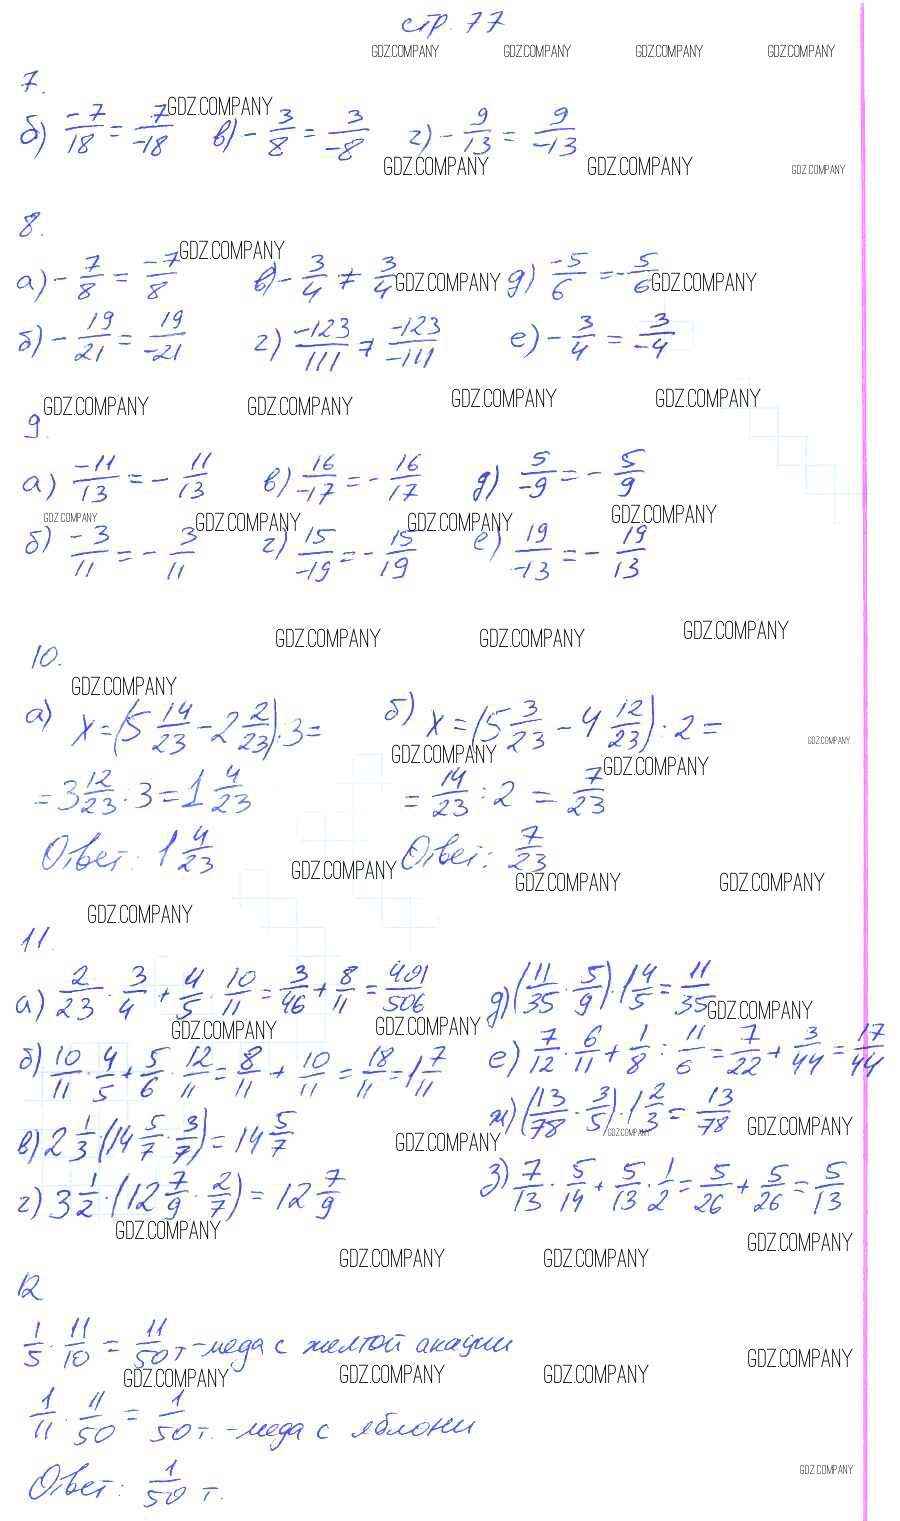 стр. 77
GDZ.COMPANY GDZ.COMPANY GDZ.COMPANY GDZ.COMPANY
7.
б) -7/18 = 7/-18 GDZ.COMPANY в) - 3/8 = 3/-8 г) - 9/13 = 9/-13
GDZ.COMPANY GDZ.COMPANY GDZ.COMPANY
8.
GDZ.COMPANY
а) - 7/8 = -7/8 в) - 3/4 ≠ 3/4 GDZ.COMPANY д) -5/6 = - 5/6 GDZ.COMPANY
б) - 19/21 = 19/-21 г) -123/111 ≠ -123/-111 е) - 3/4 = 3/-4
GDZ.COMPANY GDZ.COMPANY GDZ.COMPANY GDZ.COMPANY
9.
а) -11/13 = - 11/13 в) 16/-17 = - 16/17 д) 5/-9 = - 5/9
GDZ.COMPANY GDZ.COMPANY GDZ.COMPANY GDZ.COMPANY
б) -3/11 = - 3/11 г) 15/-19 = - 15/19 е) 19/-13 = - 19/13
GDZ.COMPANY GDZ.COMPANY GDZ.COMPANY
10.
GDZ.COMPANY
а) x = (5 14/23 - 2 2/23) : 3 = б) x = (5 3/23 - 4 12/23) : 2 =
GDZ.COMPANY GDZ.COMPANY GDZ.COMPANY
= 3 12/23 : 3 = 1 4/23 = 14/23 : 2 = 7/23
Ответ: 1 4/23 Ответ: 7/23
GDZ.COMPANY GDZ.COMPANY GDZ.COMPANY
GDZ.COMPANY
11.
а) 2/23 · 3/4 + 4/5 · 10/11 = 3/46 + 8/11 = 401/506 д) (11/35 · 5/9) · 1 4/5 = 11/35 GDZ.COMPANY
GDZ.COMPANY GDZ.COMPANY
б) 10/11 · 4/5 + 5/6 · 12/11 = 8/11 + 10/11 = 18/11 = 1 7/11 е) 7/12 · 6/11 + 1/8 : 11/6 = 7/22 + 3/44 = 17/44
в) 2 1/3 · (14 5/7 · 3/7) = 14 5/7 ж) (13/78 · 3/5) · 1 2/3 = 13/78
GDZ.COMPANY GDZ.COMPANY GDZ.COMPANY
г) 3 1/2 · (12 7/9 · 2/7) = 12 7/9 з) 7/13 · 5/14 + 5/13 · 1/2 = 5/26 + 5/26 = 5/13
GDZ.COMPANY GDZ.COMPANY
GDZ.COMPANY GDZ.COMPANY
12
1/5 · 11/10 = 11/50 т - меда с желтой акации
GDZ.COMPANY GDZ.COMPANY GDZ.COMPANY GDZ.COMPANY
1/11 · 11/50 = 1/50 т. - меда с яблони
Ответ: 1/50 т.
GDZ.COMPANY